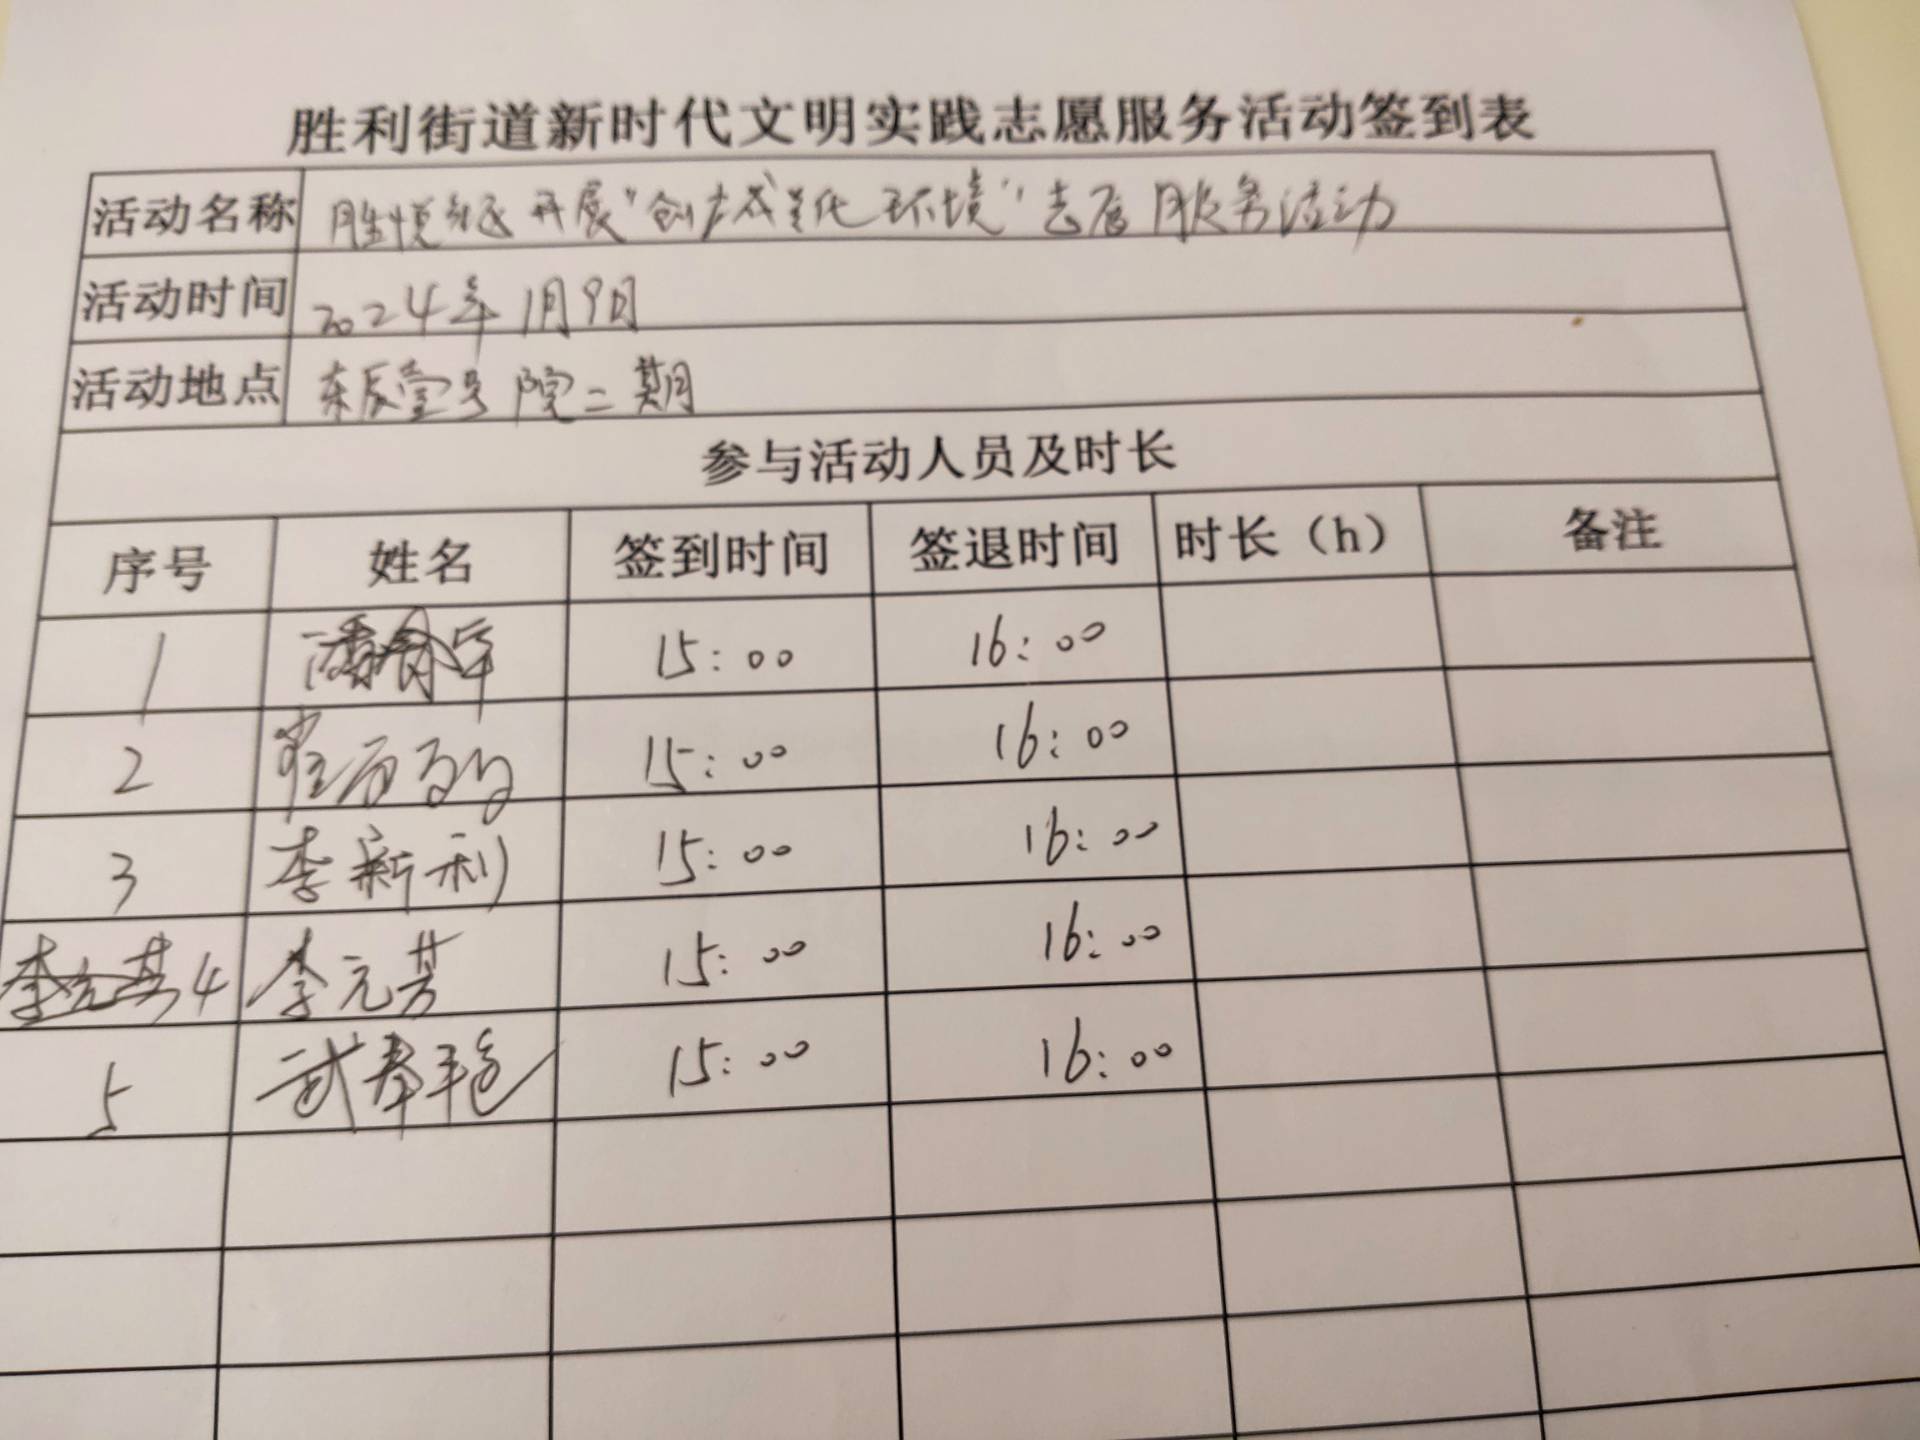 胜利街道新时代文明实践志愿服务活动签到表
活动名称 胜悦社区开展“创城美化环境”志愿服务活动
活动时间 2024年1月9日
活动地点 东辰壹号院二期
参与活动人员及时长
序号 姓名 签到时间 签退时间 时长（h） 备注
1 15:00 16:00
2 15:00 16:00
3 李新利 15:00 16:00
4 李元芳 15:00 16:00
5 15:00 16:00